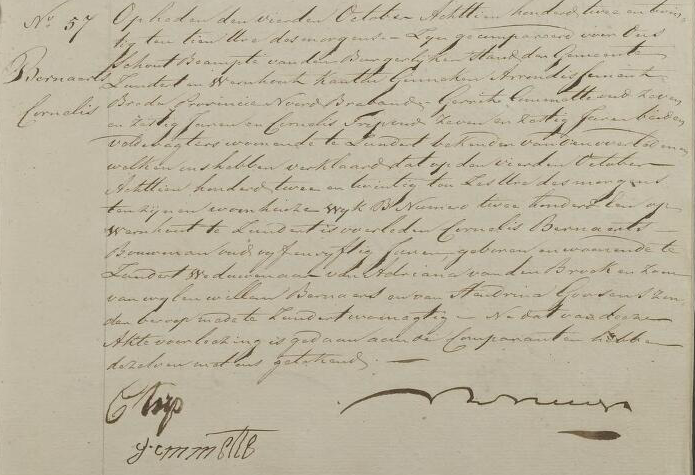 No 57
Bernaerts
Cornelis
Op heden den vierden October Achttien honderd twee en twin
tig ten tien Ure des morgens – Zyn gecompareerd voor Ons
Schout Beampte van den Burgerlyken Stand der Gemeente
Zundert en Wernhout Kanton Ginneken Arrondissement
Breda Provincie Noord Braband – Gerrit Emmette oud Zeven
en Zestig Jaren en Cornelis Tryp oud Zeven en Zestig Jaren beiden
veldwagters woonende te Zundert bekenden van den overledenen
welken ons hebben verklaard dat op den vierden October
Achttien honderd twee en twintig ten Zes Ure des morgens
ten zynen woonhuize Wyk B Numero twee honderd tien op
Wernhout te Zundert is overleden Cornelis Bernaerts –
Bouwman oud vyf en vyftig Jaren geboren en woonende te
Zundert Weduwenaar van Adriana van den Broek en Zoon
van wylen Willem Bernaers en van Hendrina Goosens Zon
der beroep mede te Zundert woonagtig – Na dat van deeze
Akte voorlezing is gedaan aan de Comparanten hebben
dezelven met ons getekend. –
C Tryp
g. emmette